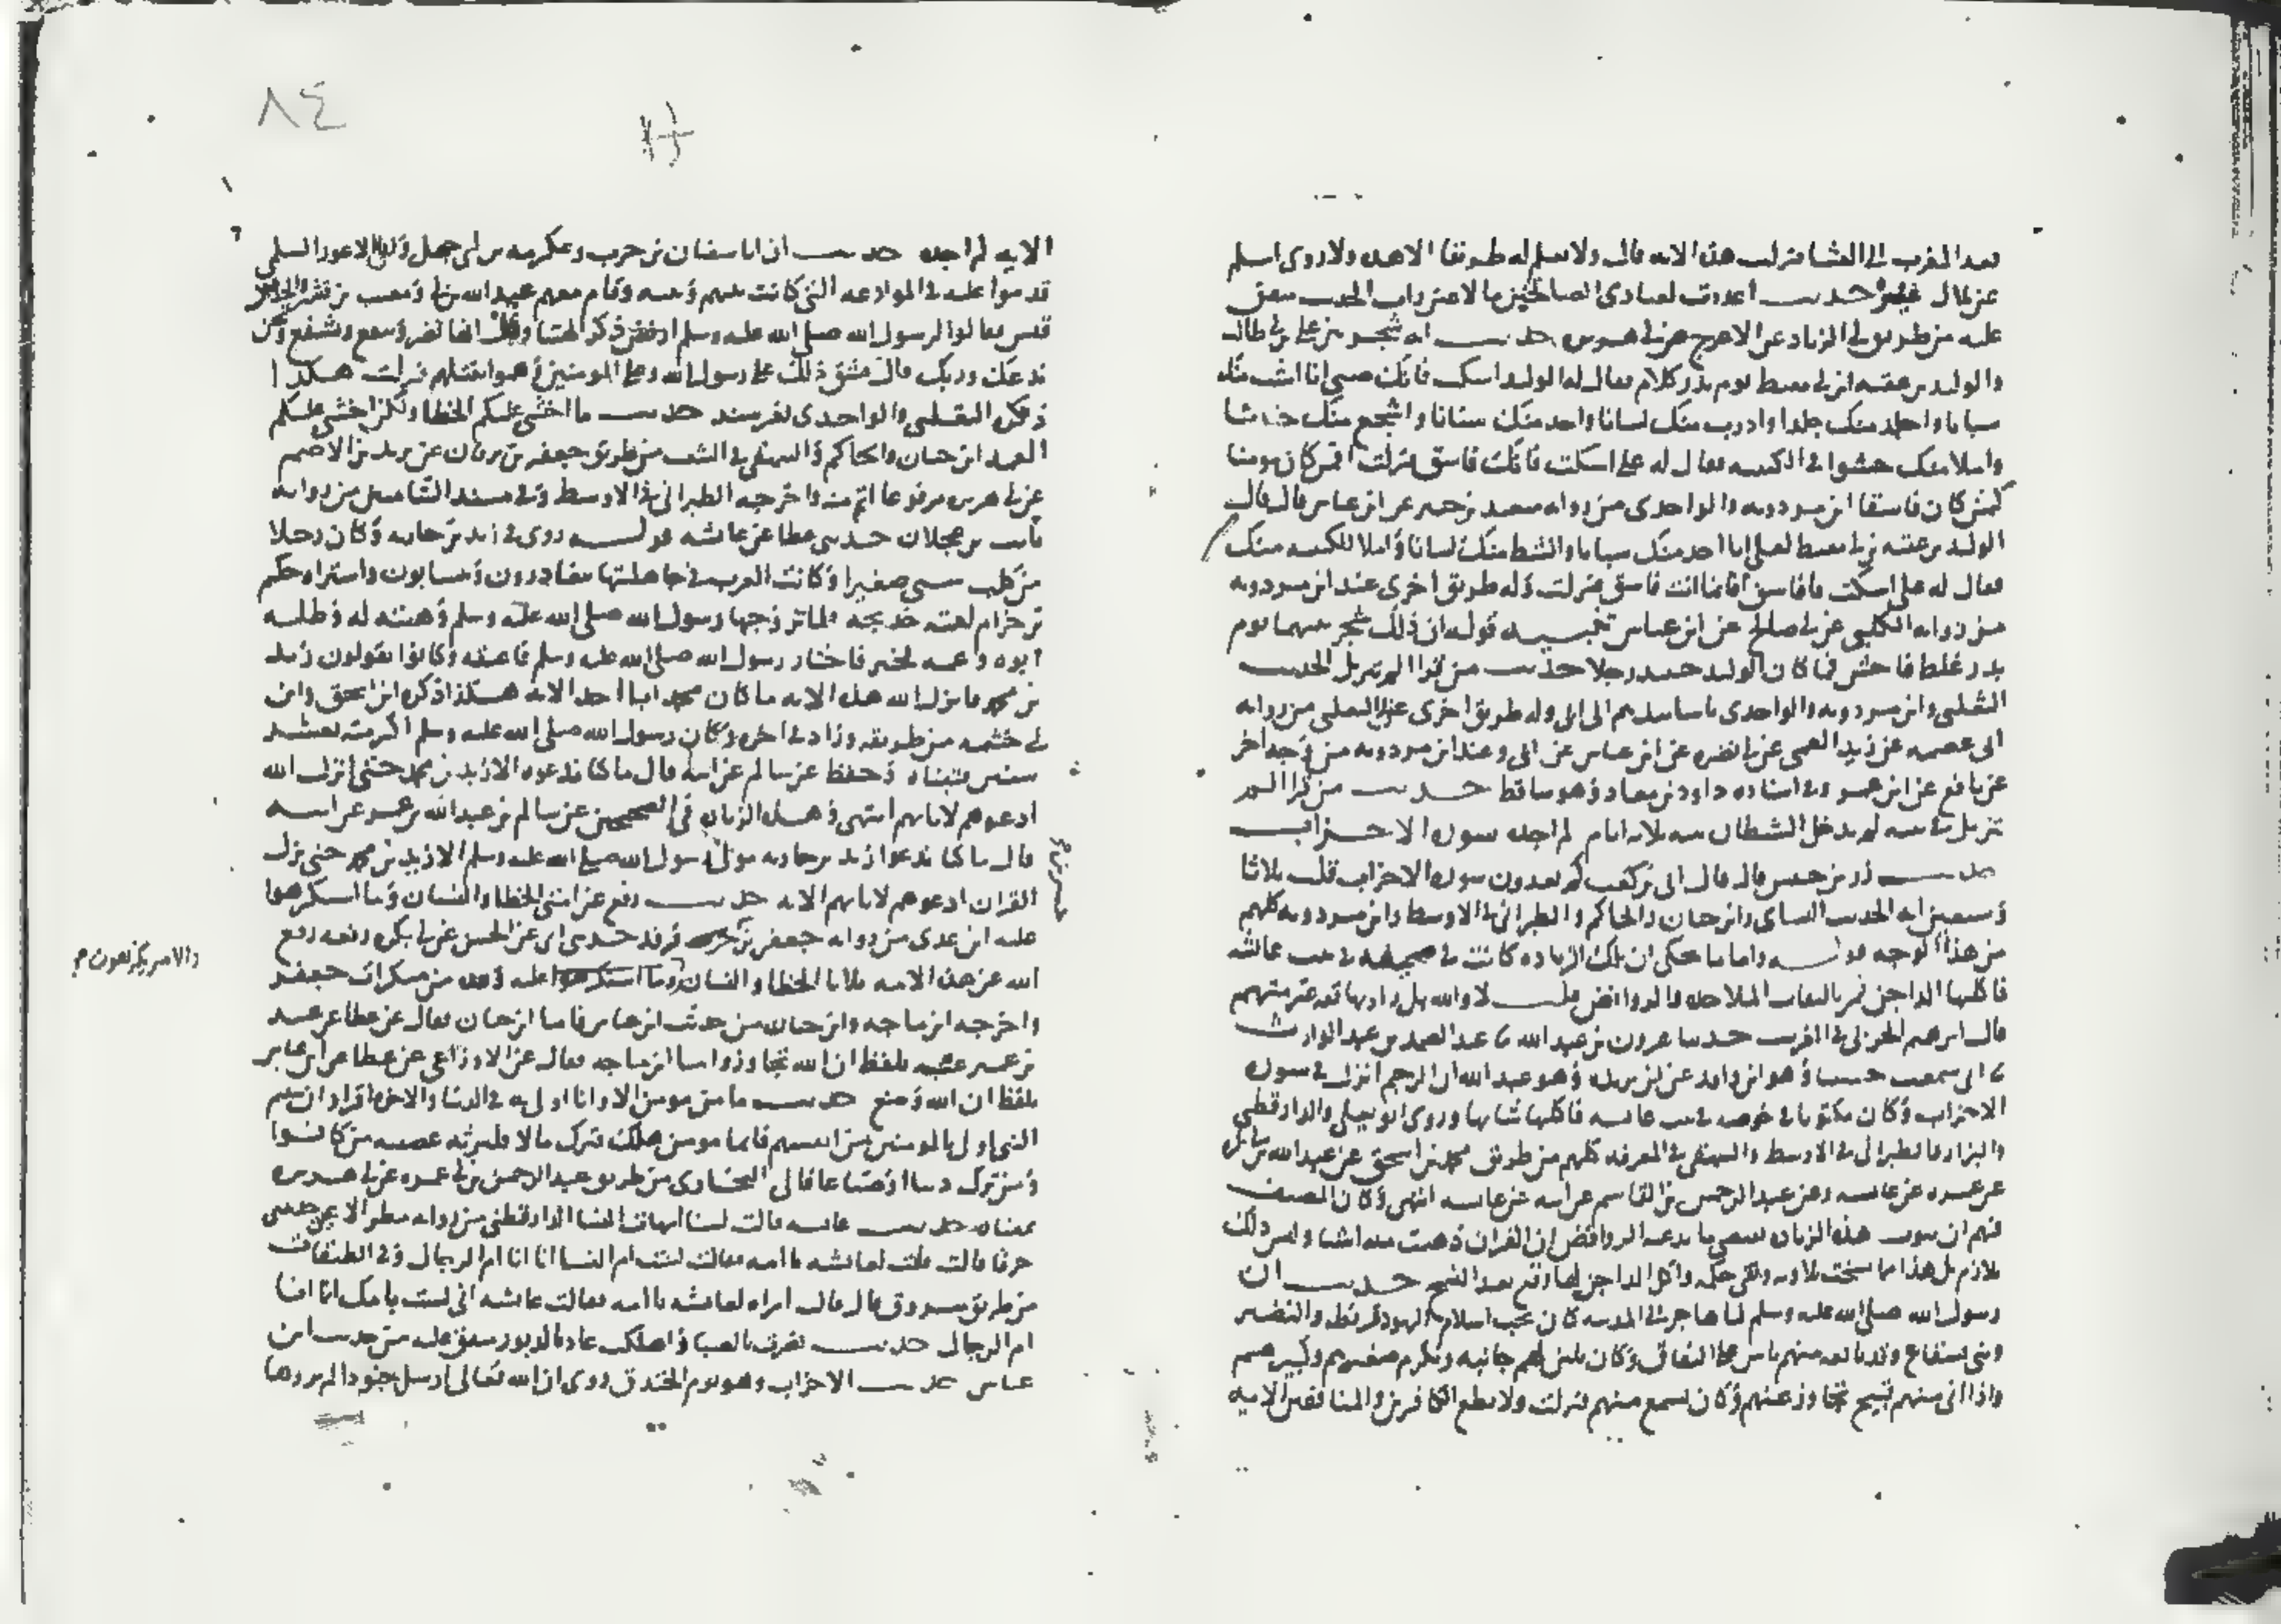 بعد المغرب الى العشا فنزلت هذه الايه قال ولا نعلم له طريقا الا هذه ولا روى اسلم
عن بلال غيره حديث اعددت لعبادى الصالحين ما لا عين رات الحديث متفق
عليه من طريق ابى الزناد عن الاعرج عن ابى هريره حديث انه شجر بين على بن ابى طالب
والوليد بن عقبه بن ابى معيط يوم بدر كلام فقال له الوليد اسكت فانك صبى انا اشب منك
شبابا واجلد منك جلدا واذرب منك لسانا واحد منك سنانا واشجع منك جنانا
واملا منك حشوا فى الكتيبه فقال له على اسكت فانك فاسق فنزلت افمن كان مومنا
كمن كان فاسقا ابن مردويه والواحدى من روايه سعيد بن جبير عن ابن عباس قال قال
الوليد بن عقبه بن ابى معيط لعلى انا احد منك سنانا وابسط منك لسانا واملا للكتيبه منك
فقال له على اسكت فانما انت فاسق فنزلت وله طريق اخرى عند ابن مردويه
من روايه الكلبى عن ابى صالح عن ابن عباس تنبيه قوله ان ذلك شجر بينهما يوم
بدر غلط فاحش فما كان الوليد حينئذ رجلا حديث من قرا الم تنزيل الحديث
الثعلبى وابن مردويه والواحدى باسانيدهم الى ابى وله طريق اخرى عند الثعلبى من روايه
ابى عصمه عن زيد العمى عن ابى نضره عن ابن عباس عن ابى وعند ابن مردويه من وجه اخر
عن نافع عن ابن عمر وفى اسناده داود بن معاذ وهو ساقط حديث من قرا الم
تنزيل فى بيته لم يدخل الشيطان بيته ثلاثه ايام لم اجده سورة الاحزاب
حديث زر بن حبيش قال قال ابى بن كعب كم تعدون سورة الاحزاب قلت ثلاثا
وسبعين ايه الحديث النساى وابن حبان والحاكم والطبرانى فى الاوسط وابن مردويه كلهم
من هذا الوجه قوله واما ما يحكى ان تلك الزياده كانت فى صحيفه فى بيت عائشه
فاكلتها الداجن فمن تاليفات الملاحده والروافض قلت لا والله بل راويها ثقه غير متهم
قال ابراهيم الحربى فى الغريب حدثنا هرون بن عبد الله ثنا عبد الصمد بن عبد الوارث
ثنا ابى سمعت حسينا وهو ابن واقد عن ابن بريده وهو عبد الله ان الرجم انزل فى سورة
الاحزاب وكان مكتوبا فى خوصه فى بيت عائشه فاكلتها شاتها وروى ابو يعلى والدارقطنى
والبزار والطبرانى فى الاوسط والبيهقى فى المعرفه كلهم من طريق محمد بن اسحق عن عبد الله بن ابى بكر
عن عمره عن عائشه وعن عبد الرحمن بن القاسم عن ابيه عن عائشه انتهى وكان المصنف
فهم ان ثبوت هذه الزياده يقتضى ما يدعيه الروافض ان القران ذهبت منه اشيا وليس ذلك
بلازم بل هذا مما نسخت تلاوته وبقى حكمه واكل الداجن لها وقع بعد النسخ حديث ان
رسول الله صلى الله عليه وسلم لما هاجر الى المدينه كان يحب اسلام اليهود قريظه والنضير
وبنى قينقاع وقد تابعه منهم ناس على النفاق وكان يلين لهم جانبه ويكرم صغيرهم وكبيرهم
واذا اتى منهم قبيح تجاوز عنهم وكان يسمع منهم فنزلت ولا تطع الكافرين والمنافقين الايه
٨٤
الايه لم اجده حديث ان ابا سفيان بن حرب وعكرمه بن ابى جهل وابا الاعور السلمى
قدموا عليه فى الموادعه التى كانت بينهم وبينه وقام معهم عبد الله بن ابى ومعتب بن قشير والجد بن قيس
فقالوا لرسول الله صلى الله عليه وسلم ارفض ذكر الهتنا وقل انها تضر وتنفع وتشفع ونحن
ندعك وربك قال فشق ذلك على رسول الله وعلى المومنين وهموا بقتلهم فنزلت هكذا
ذكره الثعلبى والواحدى بغير سند حديث ما اخشى عليكم الخطا ولكن اخشى عليكم
العمد ابن حبان والحاكم والبيهقى فى الشعب من طريق جعفر بن برقان عن يزيد بن الاصم
عن ابى هريره مرفوعا اتم منه واخرجه الطبرانى فى الاوسط وفى مسند الشاميين من روايه
ثابت بن عجلان حدثنى عطا عن عائشه قوله روى فى زيد بن حارثه وكان رجلا
من كلب سبى صغيرا وكانت العرب فى جاهليتها يتغاورون ويتسابون واشتراه حكيم
بن حزام لعمته خديجه فلما تزوجها رسول الله صلى الله عليه وسلم وهبته له وطلبه
ابوه وعمه فخير فاختار رسول الله صلى الله عليه وسلم فاعتقه وكانوا يقولون زيد
بن محمد فانزل الله هذه الايه ما كان محمد ابا احد الايه هكذا ذكره ابن اسحق وابن
ابى خثيمه من طريقه وزاد فى اخره وكان رسول الله صلى الله عليه وسلم اكبر منه بعشر
سنين فتبناه وحفظ عن سالم عن ابيه قال ما كنا ندعوه الا زيد بن محمد حتى انزل الله
ادعوهم لابائهم انتهى وهذه الزياده فى الصحيحين عن سالم بن عبد الله بن عمر عن ابيه
قال ما كنا ندعوا زيد بن حارثه مولى رسول الله صلى الله عليه وسلم الا زيد بن محمد حتى نزل
القران ادعوهم لابائهم الايه حديث رفع عن امتى الخطا والنسيان وما استكرهوا
عليه ابن عدى من روايه جعفر بن جسر بن فرقد حدثنى ابى عن الحسن عن ابى بكره رفعه رفع
الله عن هذه الامه ثلاثا الخطا والنسيان وما استكرهوا عليه وعده من منكرات جعفر
واخرجه ابن ماجه وابن حبان من حديث ابن عباس فاما ابن حبان فقال عن عطا عن عبيد
بن عمير عنه بلفظ ان الله تجاوز واما ابن ماجه فقال عن الاوزاعى عن عطا عن ابن عباس
بلفظ ان الله وضع حديث ما من مومن الا وانا اولى به فى الدنيا والاخره اقراوا ان شيتم
النبى اولى بالمومنين من انفسهم فايما مومن هلك وترك مالا فليرثه عصبته من كانوا
ومن ترك دينا او ضياعا فالى البخارى من طريق عبد الرحمن بن ابى عمره عن ابى هريره
بمعناه حديث عائشه قالت لسنا امهات النسا الدارقطنى من روايه مطر الاعن
خرقا قالت قلت لعائشه يا امه فقالت لست ام النسا انا ام الرجال وفى الطبقات
من طريق مسروق قال قالت امراه لعائشه يا امه فقالت عائشه انى لست بامك انما انا
ام الرجال حديث نصرت بالصبا واهلكت عاد بالدبور متفق عليه من حديث ابن
عباس حديث الاحزاب وهو يوم الخندق روى ان الله تعالى ارسل جنودا لم يروها
والامر يكرهون